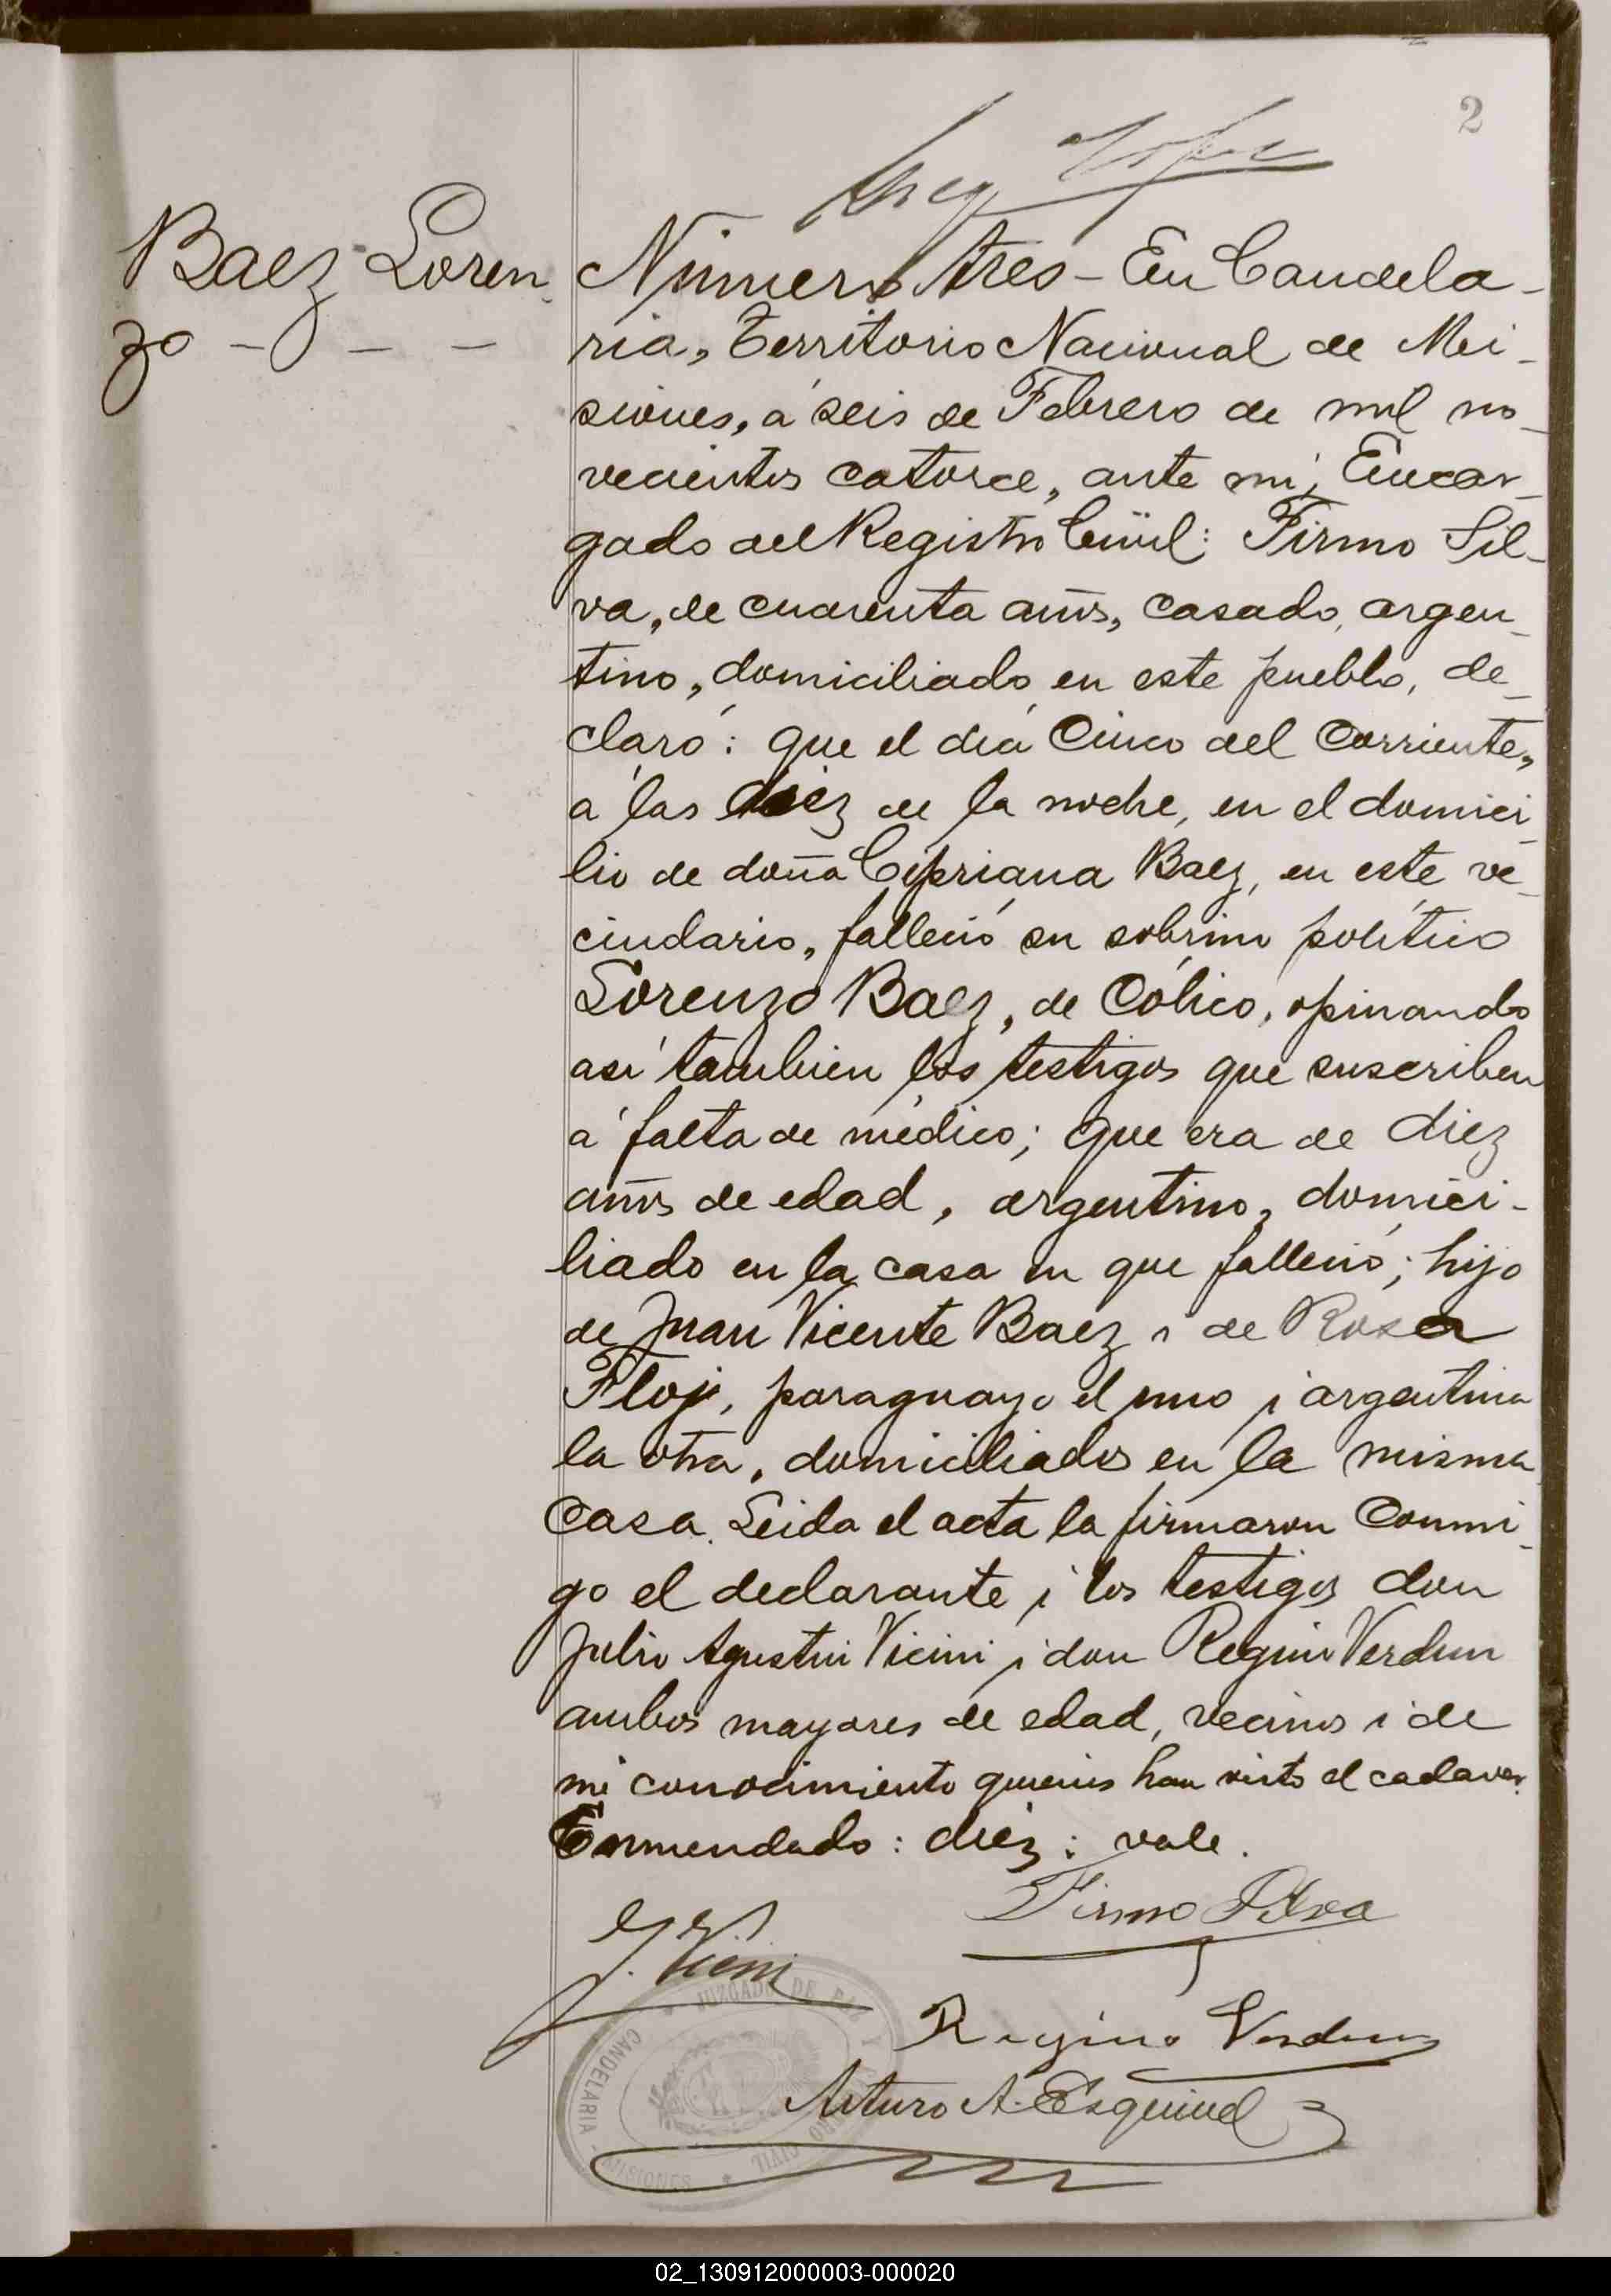 2
Baez Loren
zo - - -
Número tres - En Candela-
ria, Territorio Nacional de Mi-
siones, á seis de Febrero de mil no-
vecientos catorce, ante mi, Encar-
gado del Registro Civil: Firmo Sil-
va, de cuarenta años, casado, argen-
tino, domiciliado en este pueblo, de-
claró: que el dia Cinco del Corriente,
á las diez de la noche, en el domici-
lio de doña Cipriana Baez, en este ve-
cindario, falleció su sobrino político
Lorenzo Baez, de Cólico, opinando
así tambien los testigos que suscriben
á falta de médico; que era de diez
años de edad, argentino, domici-
liado en la casa en que falleció; hijo
de Juan Vicente Baez i de Rosa
paraguayo el uno i argentina
la otra, domiciliados en la misma
Casa. Leida el acta la firmaron Conmi-
go el declarante i los testigos don
Julio Agustin Vicini i don Regino Verdun
ambos mayores de edad, vecinos i de
mi conocimiento quienes han visto el cadaver.
Enmendado: diez: vale.
Firmo Silva
J. Vicini
JUZGADO DE PAZ Y REGISTRO CIVIL
CANDELARIA - MISIONES
Regino Verdun
Arturo A. Esquivel
02_130912000003-000020